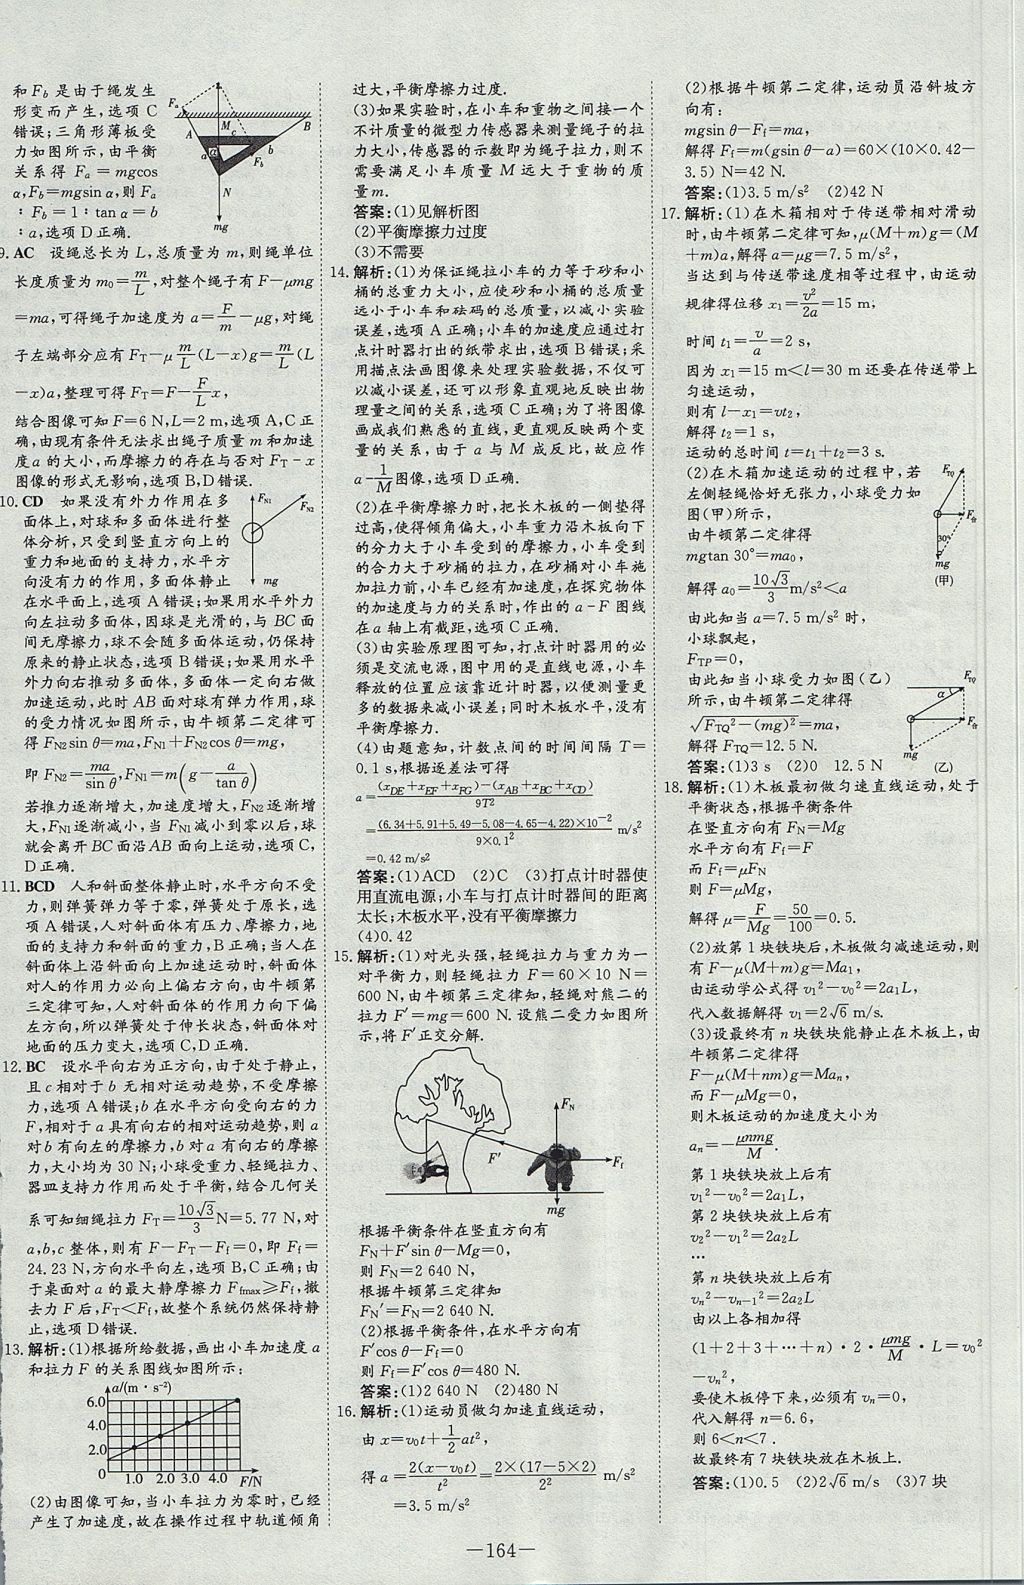 和 F_b 是由于绳发生
形变而产生,选项 C
错误;三角形薄板受
力如图所示,由平衡
关系得 F_a = mgcos
α,F_b=mgsin α,则 F_a
∶F_b=1∶tan α=b
∶a,选项 D 正确.
F_a
A
M
c
B
α
a
b
F_b
N
mg
9. AC 设绳总长为 L,总质量为 m,则绳单位
长度质量为 m₀=m/L,对整个绳子有 F-μmg
=ma,可得绳子加速度为 a=F/m-μg,对绳
子左端部分应有 F_T-μ m/L (L-x)g=m/L (L
-x)a,整理可得 F_T=F-F/L x,
结合图像可知 F=6 N,L=2 m,选项 A,C 正
确,由现有条件无法求出绳子质量 m 和加速
度 a 的大小,而摩擦力的存在与否对 F_T-x
图像的形式无影响,选项 B,D 错误.
10. CD 如果没有外力作用在多
面体上,对球和多面体进行整
体分析,只受到竖直方向上的
重力和地面的支持力,水平方
向没有力的作用,多面体静止
F_N1
F_N2
mg
在水平面上,选项 A 错误;如果用水平外力
向左拉动多面体,因球是光滑的,与 BC 面
间无摩擦力,球不会随多面体运动,仍保持
原来的静止状态,选项 B 错误;如果用水平
外力向右推动多面体,多面体一定向右做
加速运动,此时 AB 面对球有弹力作用,球
的受力情况如图所示,由牛顿第二定律可
得 F_N2 sin θ=ma,F_N1+F_N2 cos θ=mg,
即 F_N2=ma/sin θ,F_N1=m(g-a/tan θ)
若推力逐渐增大,加速度增大,F_N2 逐渐增
大,F_N1 逐渐减小,当 F_N1 减小到零以后,球
就会离开 BC 面沿 AB 面向上运动,选项 C,
D 正确.
11. BCD 人和斜面整体静止时,水平方向不受
力,则弹簧弹力等于零,弹簧处于原长,选
项 A 错误,人对斜面体有压力、摩擦力,地
面的支持力和斜面的重力,B 正确;当人在
斜面体上沿斜面向上加速运动时,斜面体
对人的作用力必向上偏右方向,由牛顿第
三定律可知,人对斜面体的作用力向下偏
左方向,所以弹簧处于伸长状态,斜面体对
地面的压力变大,选项 C,D 正确.
12. BC 设水平向右为正方向,由于处于静止,
且 c 相对于 b 无相对运动趋势,不受摩擦
力,选项 A 错误;b 在水平方向受向右的力
F,相对于 a 具有向右的相对运动趋势,则 a
对 b 有向左的摩擦力,b 对 a 有向右的摩擦
力,大小均为 30 N;小球受重力、轻绳拉力、
器皿支持力作用而处于平衡,结合几何关
系可知细绳拉力 F_T=10√3/3 N=5.77 N,对
a,b,c 整体,则有 F-F_T-F_f=0,即 F_f=
24.23 N,方向水平向左,选项 B,C 正确;由
于桌面对 a 的最大静摩擦力 F_fmax≥F_f,撤
去力 F 后,F_T<F_f,故整个系统仍然保持静
止,选项 D 错误.
13. 解析:(1)根据所给数据,画出小车加速度 a
和拉力 F 的关系图线如图所示:
a/(m·s⁻²)
6.0
4.0
2.0
0
1.0 2.0 3.0 4.0 F/N
(2)由图像可知,当小车拉力为零时,已经
产生了加速度,故在操作过程中轨道倾角
过大,平衡摩擦力过度.
(3)如果实验时,在小车和重物之间接一个
不计质量的微型力传感器来测量绳子的拉
力大小,传感器的示数即为绳子拉力,则不
需要满足小车质量 M 远大于重物的质
量 m.
答案:(1)见解析图
(2)平衡摩擦力过度
(3)不需要
14. 解析:(1)为保证绳拉小车的力等于砂和小
桶的总重力大小,应使砂和小桶的总质量
远小于小车和砝码的总质量,以减小实验
误差,选项 A 正确;小车的加速度应通过打
点计时器打出的纸带求出,选项 B 错误;采
用描点法画图像来处理实验数据,不仅可
以减小误差,还可以形象直观地反映出物
理量之间的关系,选项 C 正确;为了将图像
画成我们熟悉的直线,更直观反映两个变
量的关系,由于 a 与 M 成反比,故应作
a-1/M 图像,选项 D 正确.
(2)在平衡摩擦力时,把长木板的一侧垫得
过高,使得倾角偏大,小车重力沿木板向下
的分力大于小车受到的摩擦力,小车受到
的合力大于砂桶的拉力,在砂桶对小车施
加拉力前,小车已经有加速度,在探究物体
的加速度与力的关系时,作出的 a-F 图线
在 a 轴上有截距,选项 C 正确.
(3)由实验原理图可知,打点计时器用的必
须是交流电源,图中用的是直线电源,小车
释放的位置应该靠近计时器,以便测量更
多的数据来减小误差;同时木板水平,没有
平衡摩擦力.
(4)由题意知,计数点间的时间间隔 T=
0.1 s,根据逐差法可得
a=(x_DE+x_EF+x_FG)-(x_AB+x_BC+x_CD)/9T²
=(6.34+5.91+5.49-5.08-4.65-4.22)×10⁻²/9×0.1² m/s²
=0.42 m/s²
答案:(1)ACD (2)C (3)打点计时器使
用直流电源;小车与打点计时器间的距离
太长;木板水平,没有平衡摩擦力
(4)0.42
15. 解析:(1)对光头强,轻绳拉力与重力为一
对平衡力,则轻绳拉力 F=60×10 N=
600 N,由牛顿第三定律知,轻绳对熊二的
拉力 F′=mg=600 N. 设熊二受力如图所
示,将 F′正交分解.
F_N
F′
F_f
mg
根据平衡条件在竖直方向有
F_N+F′sin θ-Mg=0,
则 F_N=2 640 N.
根据牛顿第三定律知
F_N′=F_N=2 640 N.
(2)根据平衡条件,在水平方向有
F′cos θ-F_f=0
则 F_f=F′cos θ=480 N.
答案:(1)2 640 N (2)480 N
16. 解析:(1)运动员做匀加速直线运动,
由 x=v₀t+1/2 at²,
得 a=2(x-v₀t)/t²=2×(17-5×2)/2² m/s²
=3.5 m/s²
(2)根据牛顿第二定律,运动员沿斜坡方
向有:
mgsin θ-F_f=ma,
解得 F_f=m(gsin θ-a)=60×(10×0.42-
3.5) N=42 N.
答案:(1)3.5 m/s² (2)42 N
17. 解析:(1)在木箱相对于传送带相对滑动
时,由牛顿第二定律可知,μ(M+m)g=(M
+m)a,解得 a=μg=7.5 m/s²,
当达到与传送带速度相等过程中,由运动
规律得位移 x₁=v²/2a=15 m,
时间 t₁=v/a=2 s,
因为 x₁=15 m<l=30 m 还要在传送带上
匀速运动,
则有 l-x₁=vt₂,
解得 t₂=1 s,
运动的总时间 t=t₁+t₂=3 s.
(2)在木箱加速运动的过程中,若
左侧轻绳恰好无张力,小球受力如
图(甲)所示,
由牛顿第二定律得
mgtan 30°=ma₀,
解得 a₀=10√3/3 m/s²<a
由此可知当 a=7.5 m/s² 时,
小球飘起,
F_TP=0,
由此可知当小球受力如图(乙)
所示,由牛顿第二定律得
√F_TQ²-(mg)²=ma,
解得 F_TQ=12.5 N.
F_TQ
F_合
30°
mg
(甲)
F_TQ
α
F_合
mg
(乙)
答案:(1)3 s (2)0 12.5 N
18. 解析:(1)木板最初做匀速直线运动,处于
平衡状态,根据平衡条件
在竖直方向有 F_N=Mg
水平方向有 F_f=F
而 F_f=μF_N
则 F=μMg,
解得 μ=F/Mg=50/100=0.5.
(2)放第 1 块铁块后,木板做匀减速运动,则
有 F-μ(M+m)g=Ma₁,
由运动学公式得 v₁²-v₀²=2a₁L,
代入数据解得 v₁=2√6 m/s.
(3)设最终有 n 块铁块能静止在木板上,由
牛顿第二定律得
F-μ(M+nm)g=Ma_n,
而 F-μMg=0,
则木板运动的加速度大小为
a_n=-μnmg/M.
第 1 块铁块放上后有
v₁²-v₀²=2a₁L,
第 2 块铁块放上后有
v₂²-v₁²=2a₂L
…
第 n 块铁块放上后有
v_n²-v_n-1²=2a₂L
由以上各相加得
(1+2+3+…+n)·2·μmg/M·L=v₀²
-v_n²,
要使木板停下来,必须有 v_n=0,
代入解得 n=6.6,
则 6<n<7.
故最终有 7 块铁块放在木板上.
答案:(1)0.5 (2)2√6 m/s (3)7 块
—164—